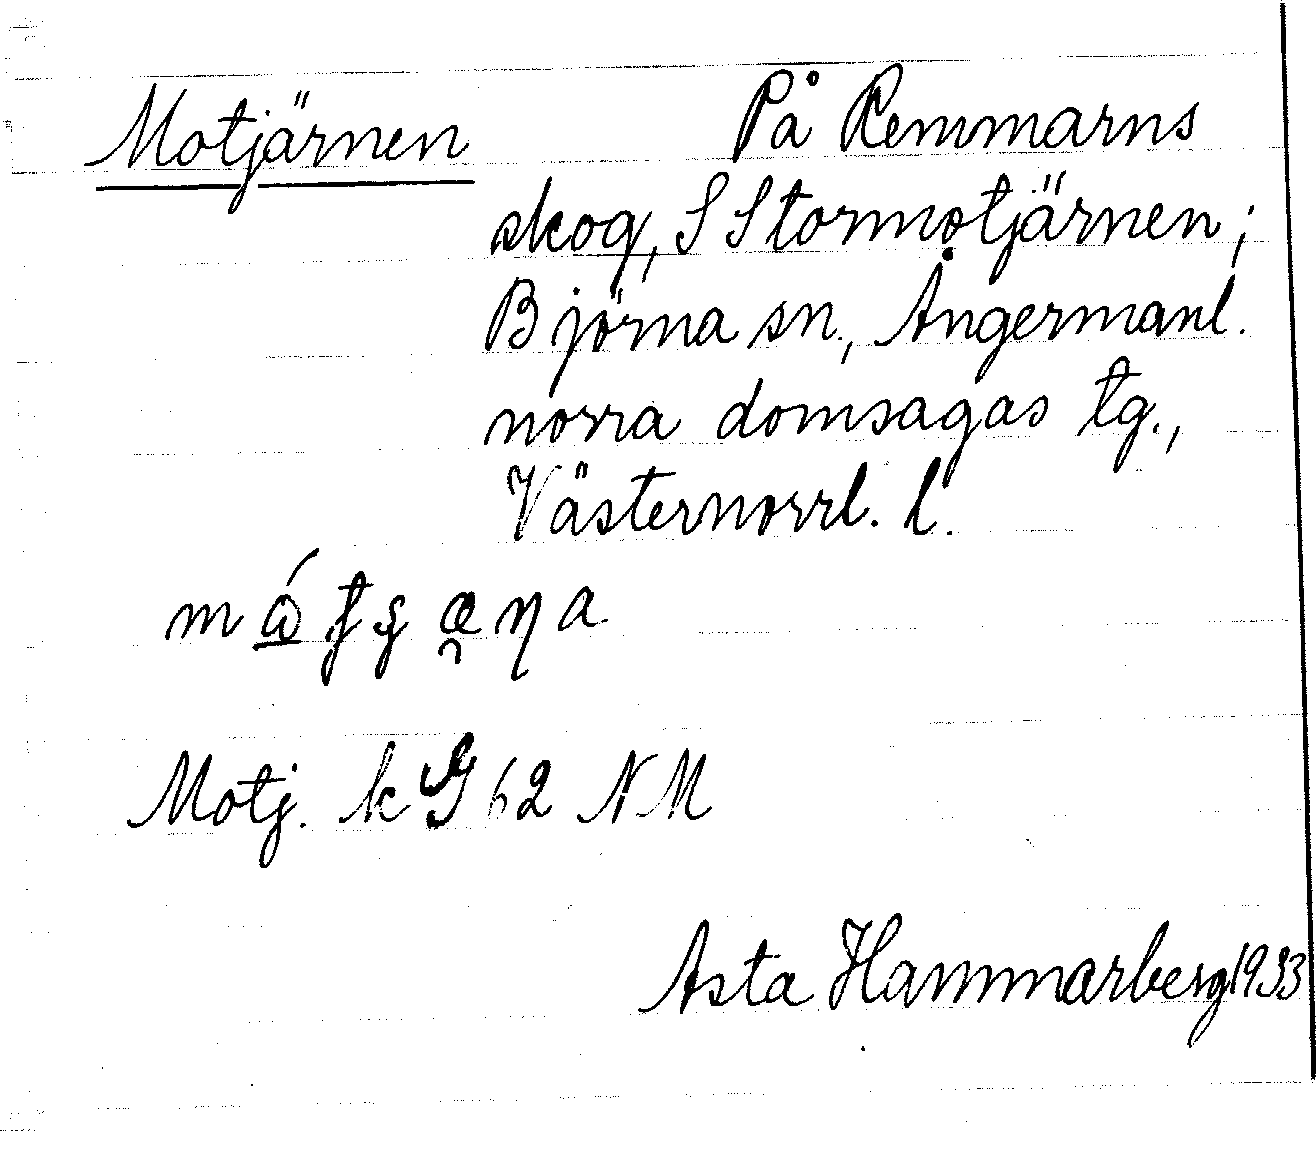 Motjärnen På Remmarns
skog, S Stormotjärnen;
Björna sn., Ångermanl.
norra domsagas tg.,
Västernorrl. l.
Motj. k G 62 NM
Asta Hammarberg 1933